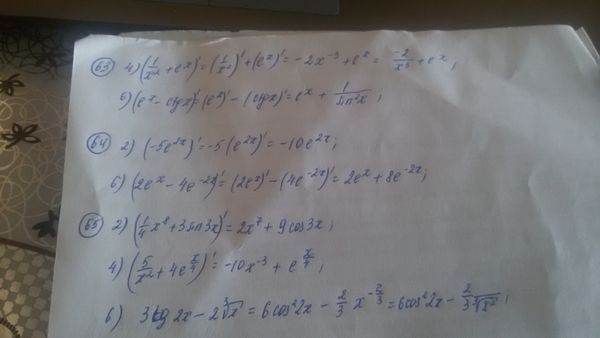 63 4) (1/x² + eˣ)' = (1/x²)' + (eˣ)' = -2x⁻³ + eˣ = -2/x³ + eˣ;
6) (eˣ - ctgx)' (eˣ)' - (ctgx)' = eˣ + 1/sin²x;
64 2) (-5e²ˣ)' = -5(e²ˣ)' = -10e²ˣ;
6) (2eˣ - 4e⁻²ˣ)' = (2eˣ)' - (4e⁻²ˣ)' = 2eˣ + 8e⁻²ˣ;
65 2) (1/4 x⁸ + 3sin3x)' = 2x⁷ + 9cos3x;
4) (5/x² + 4e^(x/4))' = -10x⁻³ + e^(x/4);
6) 3tg2x - 2∛x = 6cos²2x - 2/3 x^(-2/3) = 6cos²2x - 2/(3∛x²);